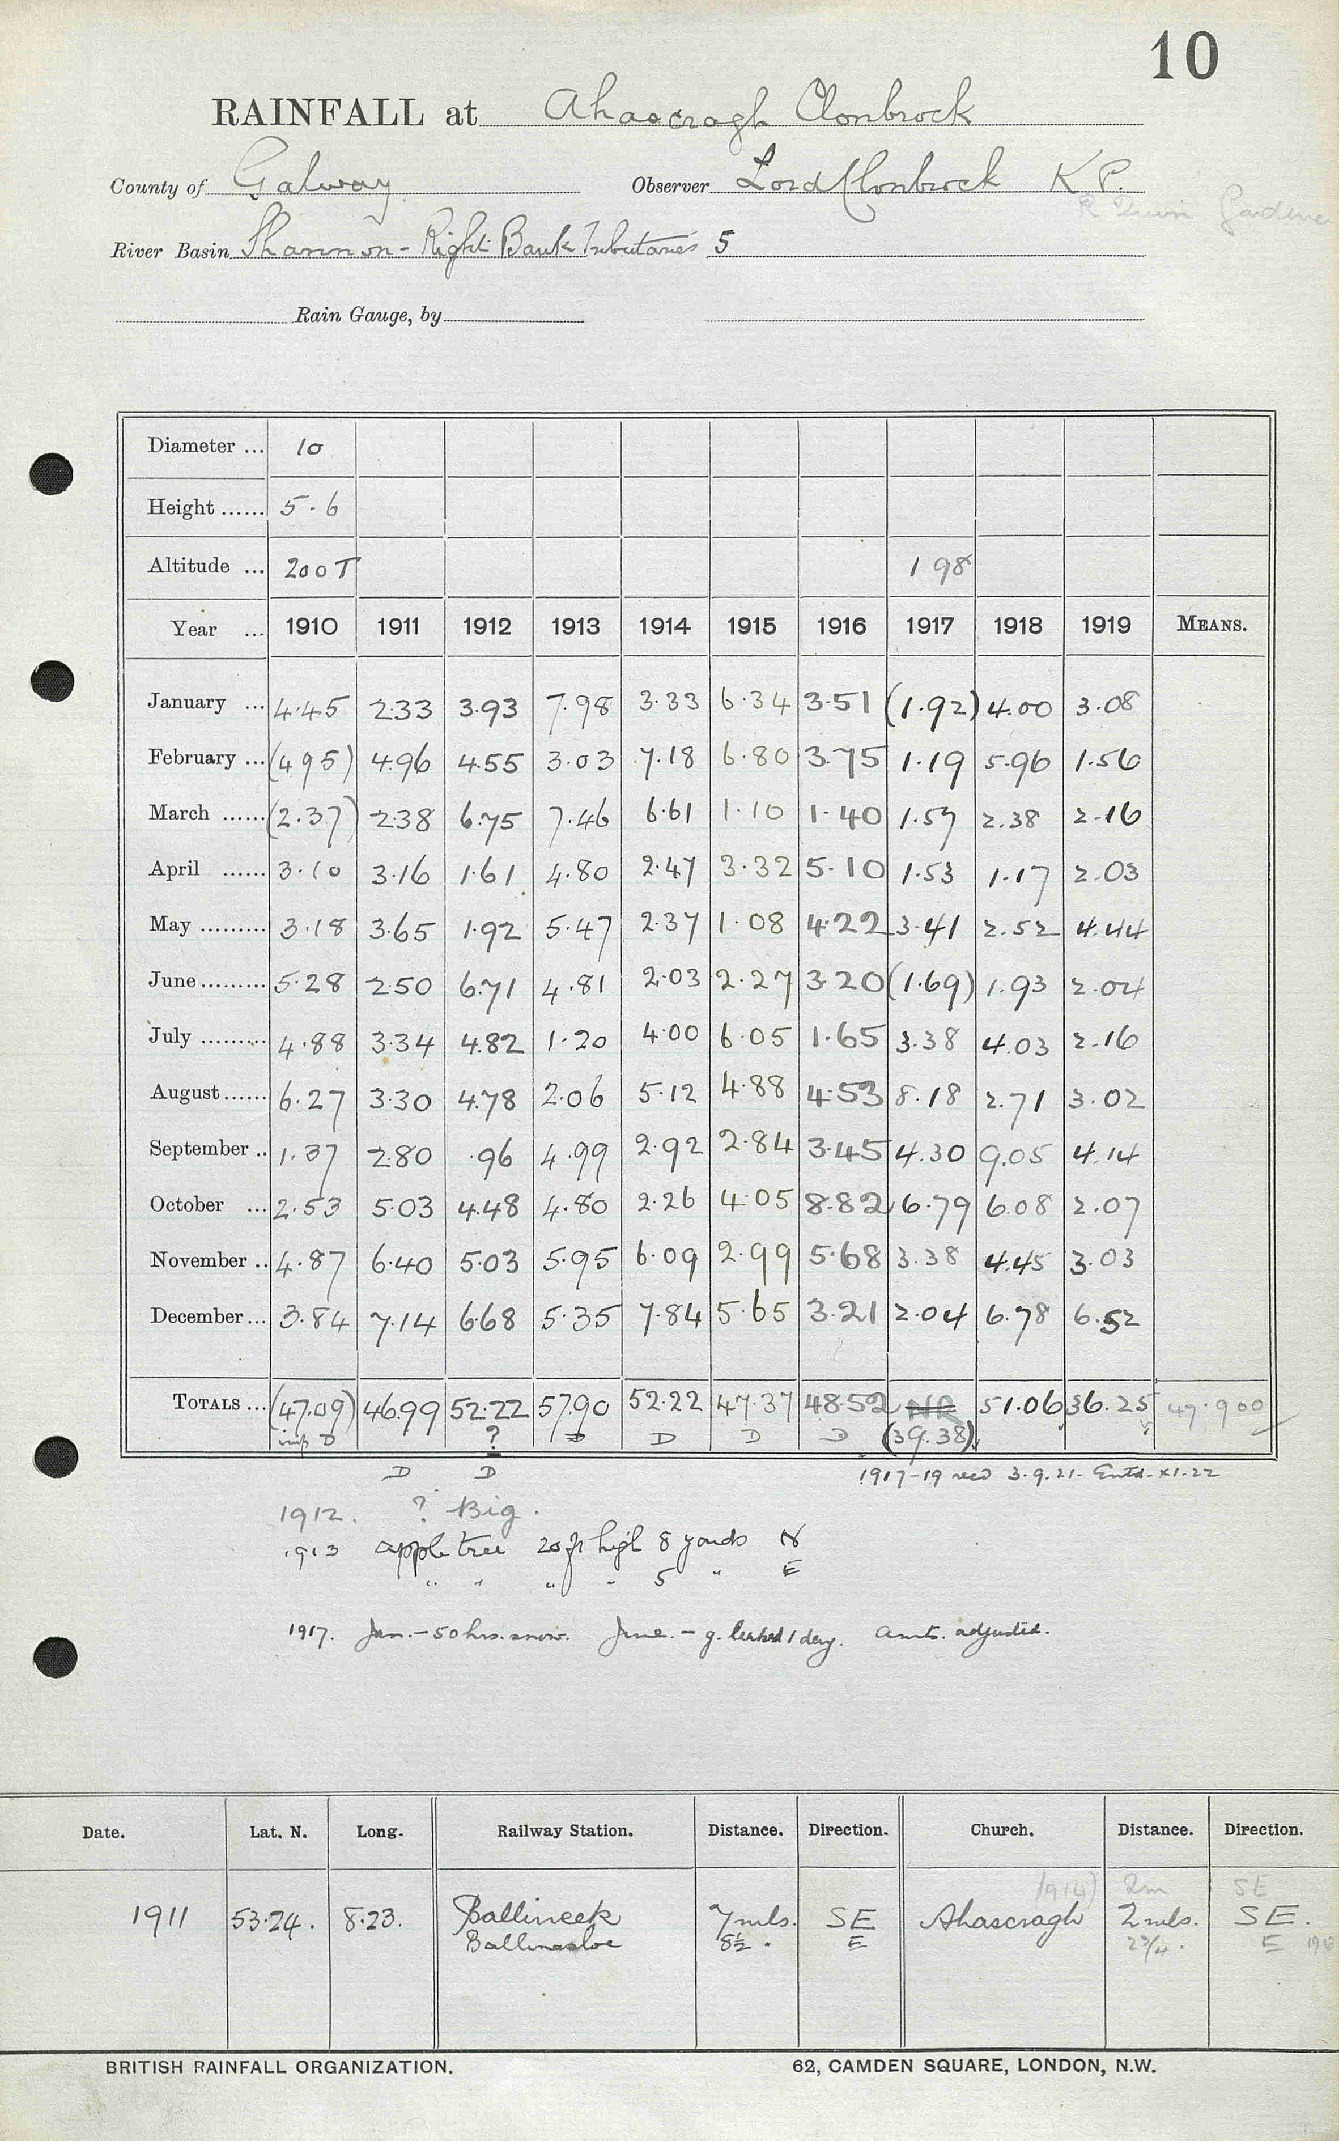 10
RAINFALL at Ahascragh Clonbrock
County of Galway Observer Lord Clonbrock K.P.
River Basin Shannon - Right Bank Tributaries 5
Rain Gauge, by
Diameter ... 10
Height ...... 5.6
Altitude ... 200T 198
Year ... 1910 1911 1912 1913 1914 1915 1916 1917 1918 1919 MEANS.
January ... 4.45 2.33 3.93 7.98 3.33 6.34 3.51 (1.92) 4.00 3.08
February ... (4.95) 4.96 4.55 3.03 7.18 6.80 3.75 1.19 5.96 1.56
March ...... (2.37) 2.38 6.75 7.46 6.61 1.10 1.40 1.57 2.38 2.16
April ...... 3.10 3.16 1.61 4.80 2.47 3.32 5.10 1.53 1.17 2.03
May ......... 3.18 3.65 1.92 5.47 2.37 1.08 4.22 3.41 2.52 4.44
June ......... 5.28 2.50 6.71 4.81 2.03 2.27 3.20 (1.69) 1.93 2.04
July ......... 4.88 3.34 4.82 1.20 4.00 6.05 1.65 3.38 4.03 2.16
August ...... 6.27 3.30 4.78 2.06 5.12 4.88 4.53 8.18 2.71 3.02
September .. 1.37 2.80 .96 4.99 2.92 2.84 3.45 4.30 9.05 4.14
October ... 2.53 5.03 4.48 4.80 2.26 4.05 8.82 6.79 6.08 2.07
November .. 4.87 6.40 5.03 5.95 6.09 2.99 5.68 3.38 4.45 3.03
December ... 3.84 7.14 6.68 5.35 7.84 5.65 3.21 2.04 6.78 6.52
TOTALS ... (47.09) 46.99 52.22 57.90 52.22 47.37 48.52 NR 51.06 36.25 47.900
D ? D D D D (39.38)
D D 1917-19 recd 3.9.21. Entd. x1.22
1912. ? Big.
1913 apple tree 20 ft high 8 yards N
" " " " 5 " E
1917. Jan. - 50 hrs. snow. June. - g. leaked 1 day. Amts. adjusted.
Date. Lat. N. Long. Railway Station. Distance. Direction. Church. Distance. Direction.
1914) 2m SE
1911 53.24. 8.23. Ballineek 7 mls. SE Ahascragh 2 mls. SE.
Ballinasloe 8½ . E 2¾ . E
BRITISH RAINFALL ORGANIZATION. 62, CAMDEN SQUARE, LONDON, N.W.